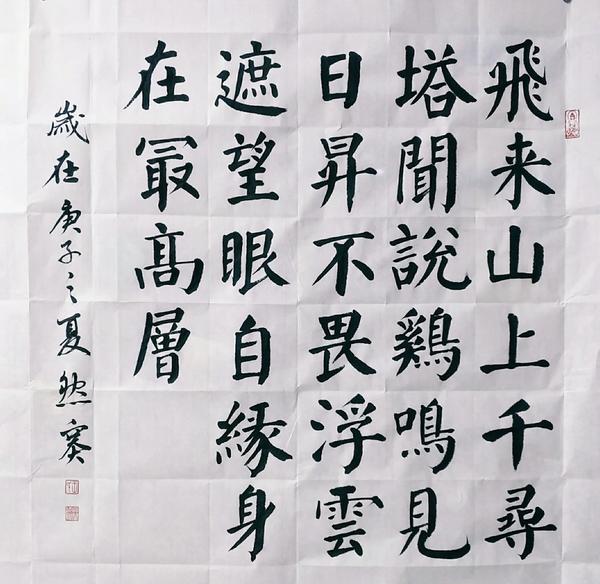 飛来山上千尋
塔聞說鷄鳴見
日昇不畏浮雲
遮望眼自緣身
在冣高層
歲在庚子之夏